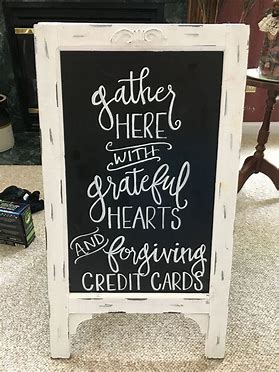 gather
HERE
WITH
grateful
HEARTS
AND forgiving
CREDIT CARDS